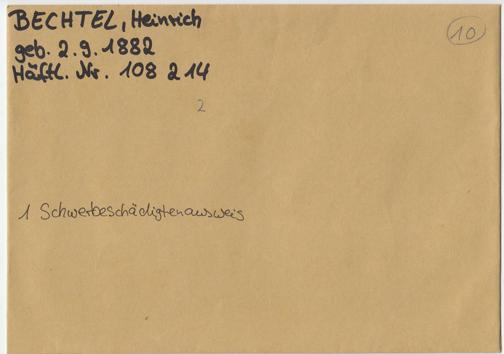 BECHTEL, Heinrich
10
geb. 2.9.1882
Häftl. Nr. 108 214
2
1 Schwerbeschädigtenausweis